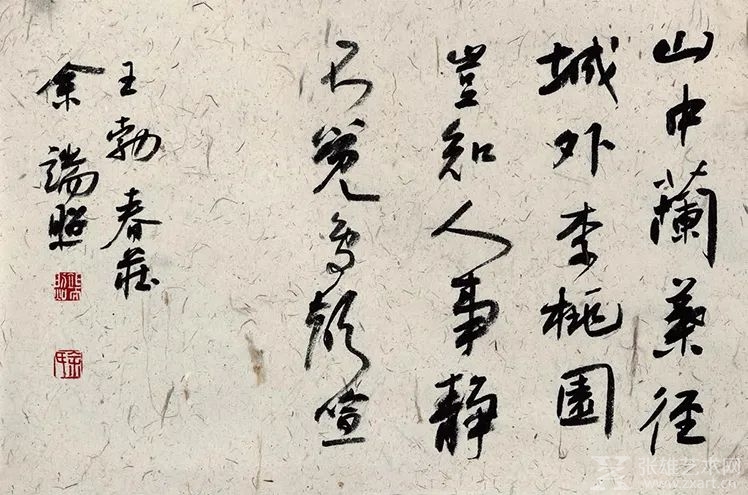 山中蘭葉径
城外李桃園
豈知人事静
不覺鳥聲喧
王勃春莊
余端照
张雄艺术网
www.zxart.cn